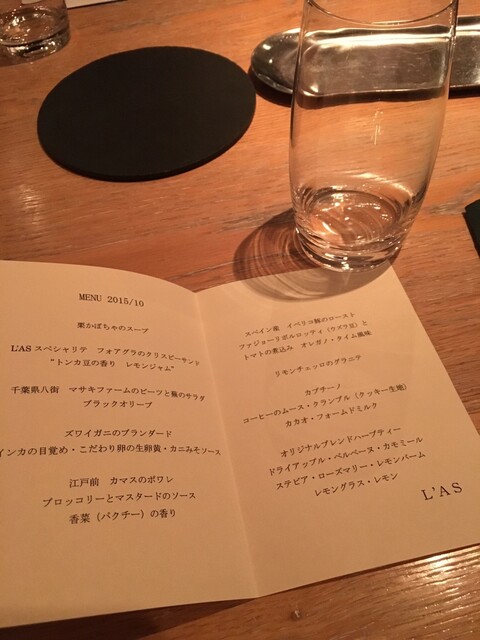 MENU 2015/10
栗かぼちゃのスープ
L'AS スペシャリテ フォアグラのクリスピーサンド
"トンカ豆の香り レモンジャム"
千葉県八街 マサキファームのビーツと蕪のサラダ
ブラックオリーブ
ズワイガニのブランダード
インカの目覚め・こだわり卵の生卵黄・カニみそソース
江戸前 カマスのポワレ
ブロッコリーとマスタードのソース
香菜（パクチー）の香り
スペイン産 イベリコ豚のロースト
ファジョーリボルロッティ（ウズラ豆）と
トマトの煮込み オレガノ・タイム風味
リモンチェッロのグラニテ
カプチーノ
コーヒーのムース・クランブル（クッキー生地）
カカオ・フォームドミルク
オリジナルブレンドハーブティー
ドライアップル・ベルベーヌ・カモミール
ステビア・ローズマリー・レモンバーム
レモングラス・レモン
L'AS